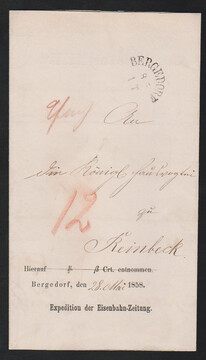 BERGEDORF
An
die Königl
zu
Reinbeck
12
Hierauf ß Crt. entnommen.
Bergedorf, den 28 Mai 1858.
Expedition der Eisenbahn-Zeitung.